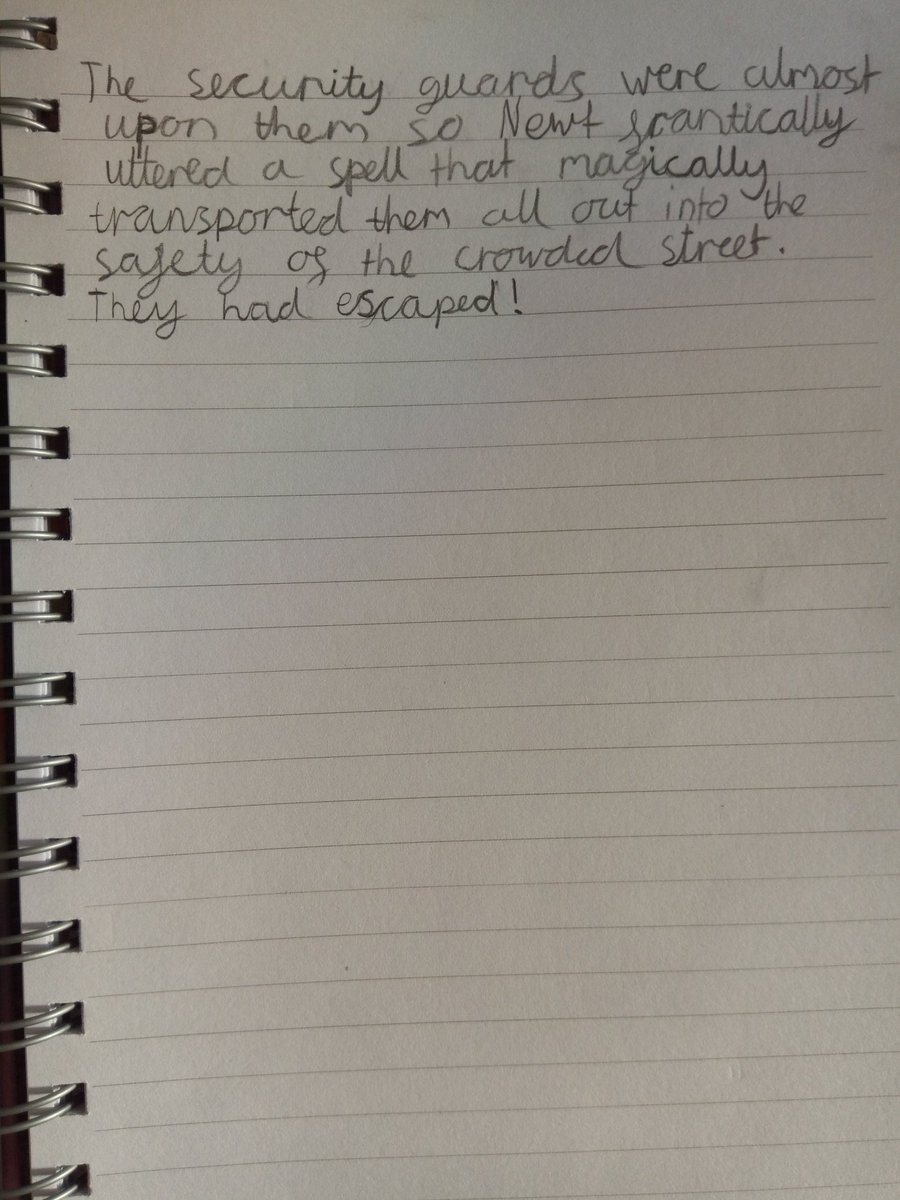 The security guards were almost
upon them so Newt frantically
uttered a spell that magically
transported them all out into the
safety of the crowded street.
They had escaped!